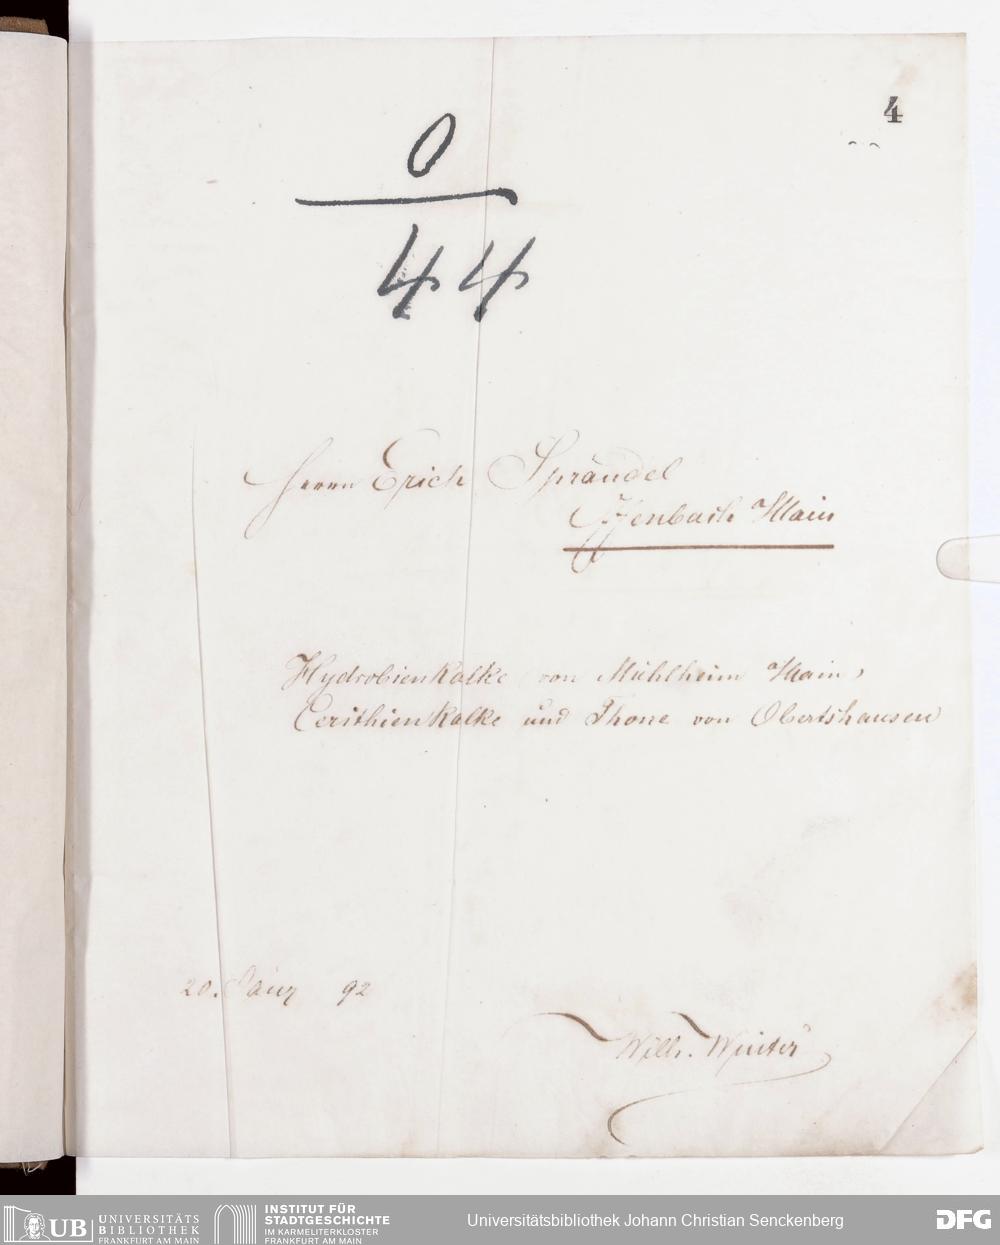 4
0
44
Herrn Erich Sprändel
Offenbach Main
Hydrobienkalke von Mühlheim Main,
Cerithienkalke und Thone von Obertshausen
20. 92
Wilh. Winter
UB UNIVERSITÄTS
BIBLIOTHEK
FRANKFURT AM MAIN
INSTITUT FÜR
STADTGESCHICHTE
IM KARMELITERKLOSTER
FRANKFURT AM MAIN
Universitätsbibliothek Johann Christian Senckenberg
DFG